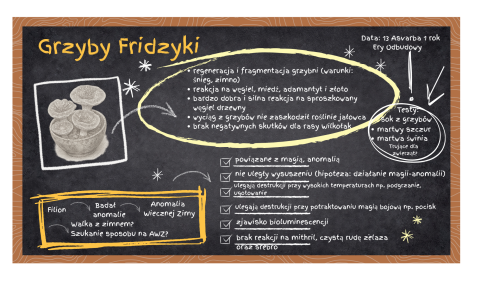 Grzyby Fridzyki
Data: 13 Asvarba 1 rok
Ery Odbudowy
• regeneracja i fragmentacja grzybni (warunki:
śnieg, zimno)
• reakcja na węgiel, miedź, adamantyt i złoto
• bardzo dobra i silna reakcja na sproszkowany
węgiel drzewny
• wyciąg z grzybów nie zaszkodził roślinie jałowca
• brak negatywnych skutków dla rasy wilkołak
Testy:
• sok z grzybów
• martwy szczur
• martwa świnia
Trujące dla
zwierząt?
powiązane z magią, anomalią
nie uległy wysuszeniu (hipoteza: działanie magii-anomalii)
ulegają destrukcji przy wysokich temperaturach np. podgrzanie,
ugotowanie
ulegają destrukcji przy potraktowaniu magią bojową np. pocisk
zjawisko bioluminescencji
brak reakcji na mithril, czystą rudę żelaza
oraz srebro
Filion
Badał
anomalie
Anomalia
Wiecznej Zimy
Walka z zimnem?
Szukanie sposobu na AWZ?